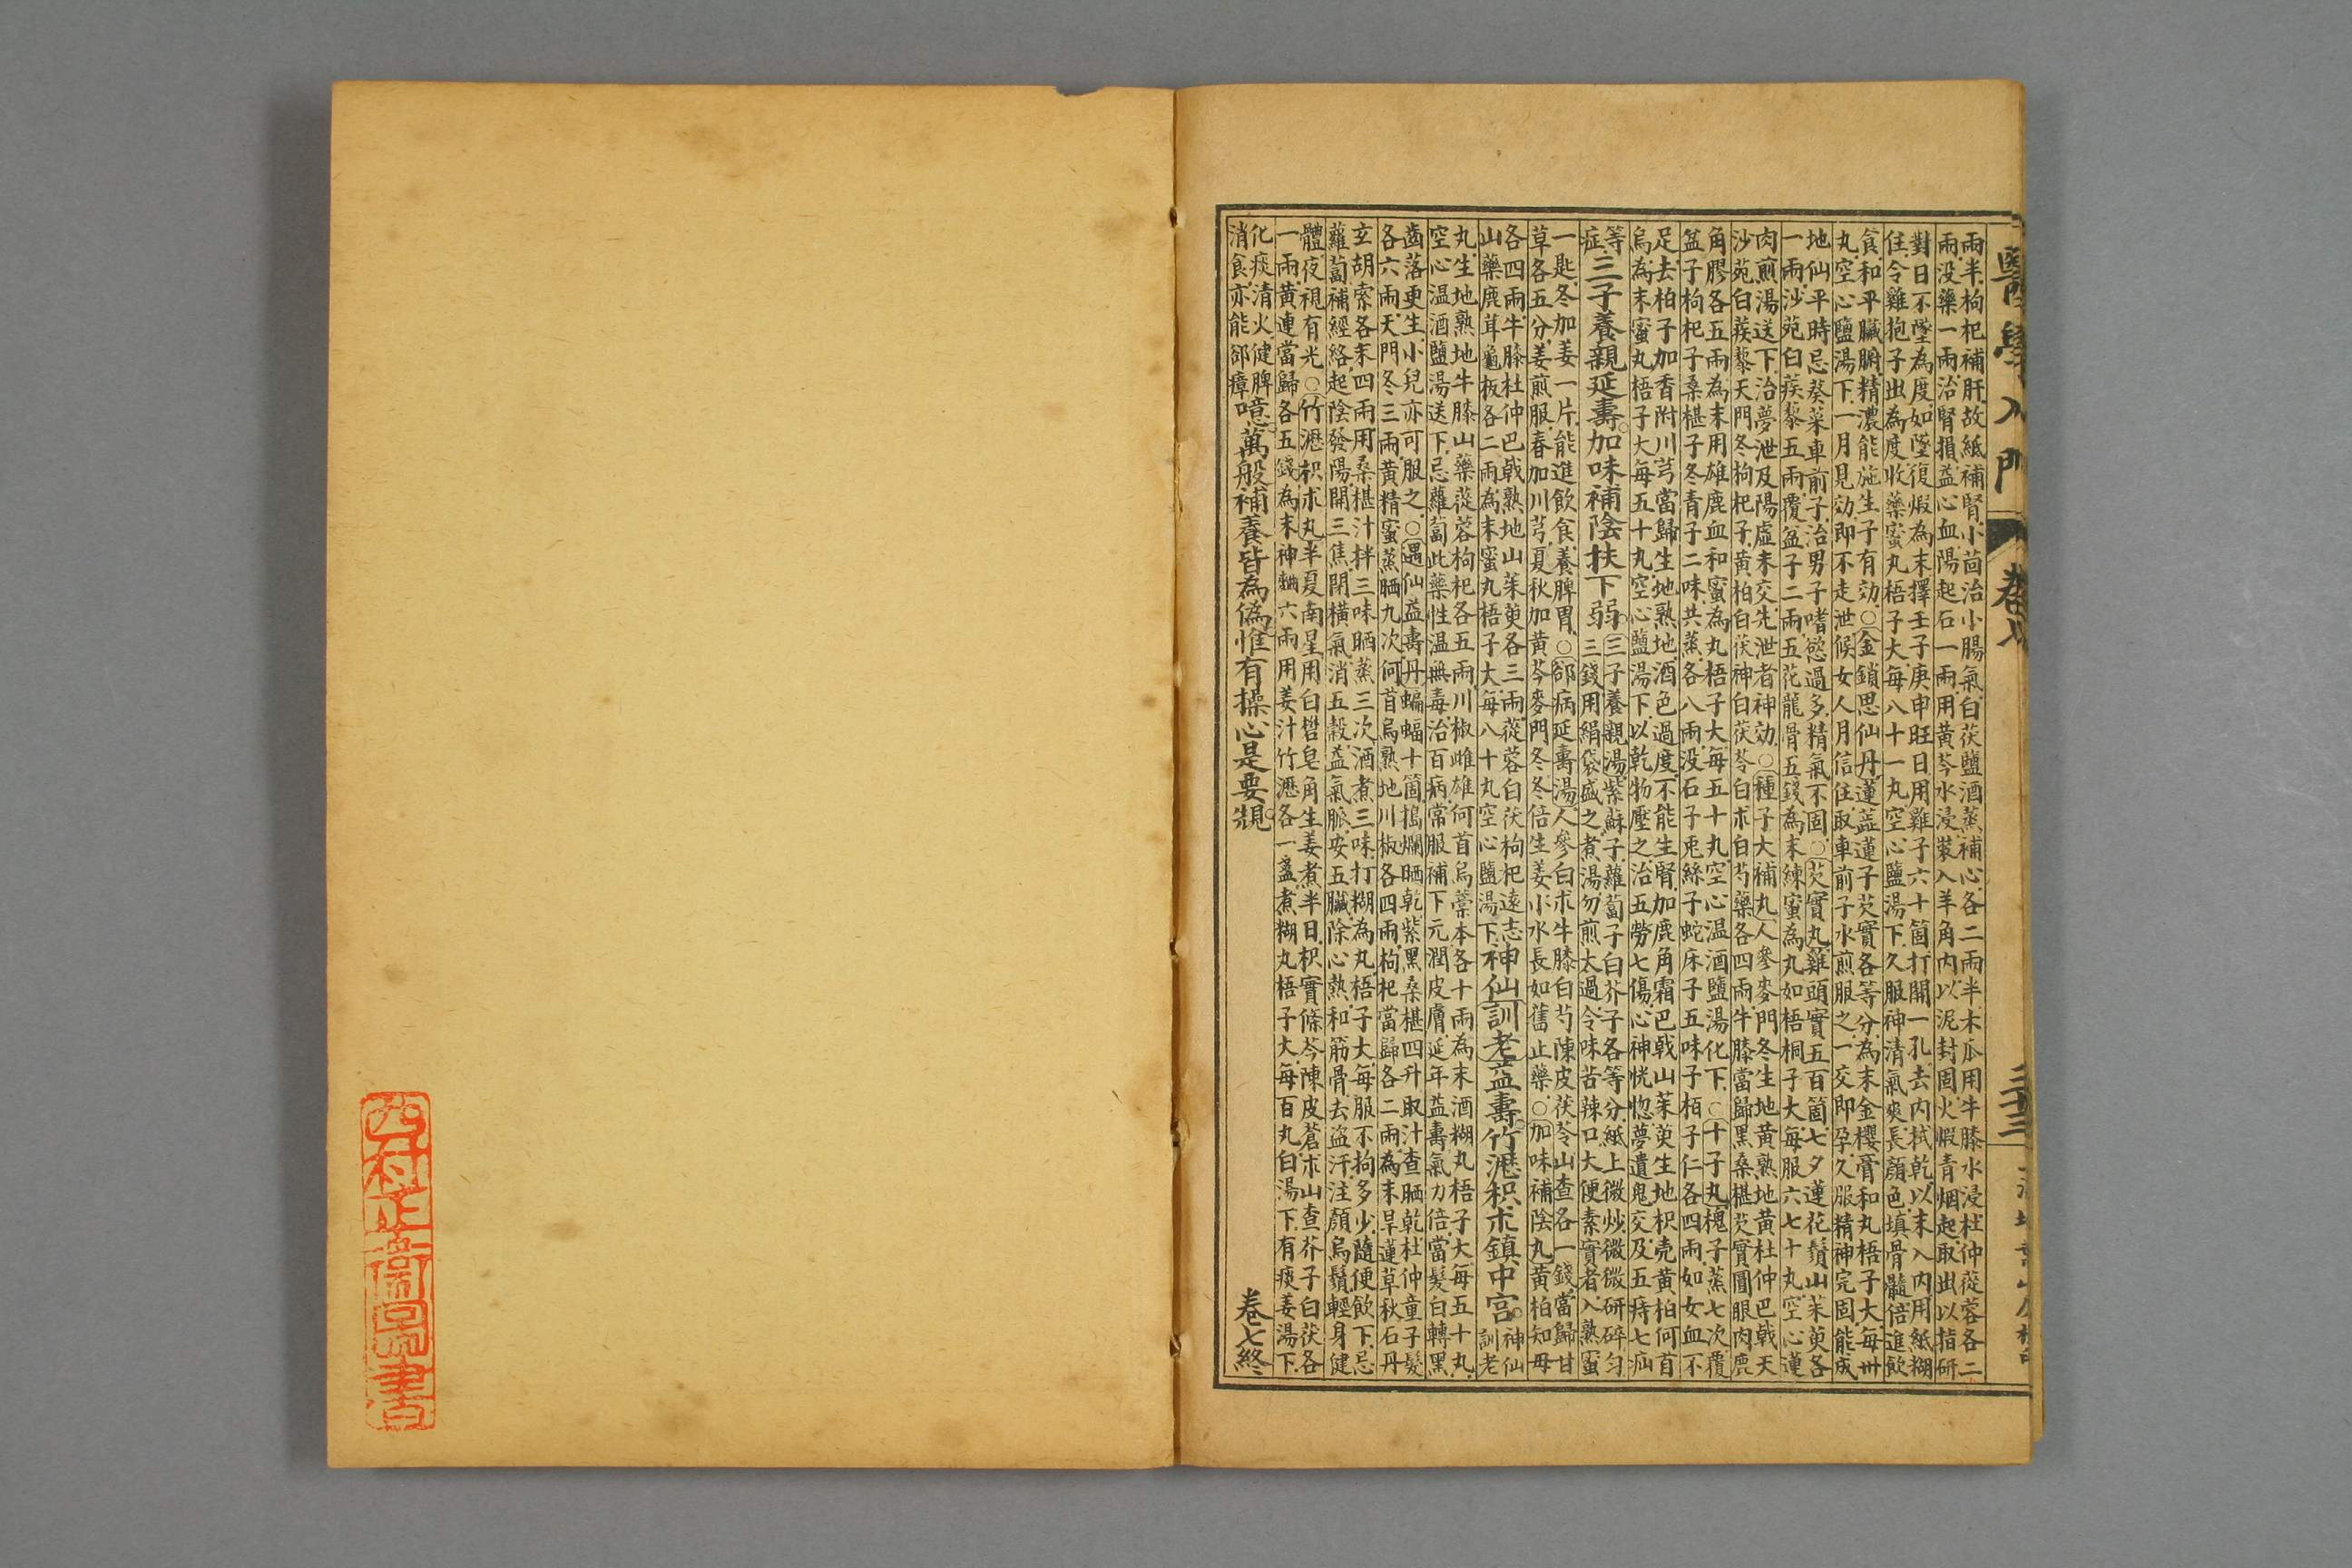 醫學入門 卷七
兩半枸杞補肝故紙補腎小茴治小腸氣白茯鹽酒蒸補心各二兩半木瓜用牛膝水浸杜仲蓯蓉各二
兩没藥一兩治腎損益心血陽起石一兩用黃芩水浸裝入羊角內以泥封固火煅青烟起取出以指研
對日不墜為度如墜復煅為末擇壬子庚申旺日用雞子六十箇打開一孔去內拭乾以末入內用紙糊
住令雞抱子出為度收藥蜜丸梧子大每八十一丸空心鹽湯下久服神清氣爽長顏色填骨髓倍進飲
食和平臟腑精濃能施生子有効○金鎖思仙丹蓮蕋蓮子芡實各等分為末金櫻膏和丸梧子大每卅
丸空心鹽湯下一月見効即不走泄候女人月信住取車前子水煎服之一交即孕久服精神完固能成
地仙平時忌葵菜車前子治男子嗜慾過多精氣不固○芡實丸雞頭實五百箇七夕蓮花鬚山茱萸各
一兩沙苑白蒺藜五兩覆盆子二兩五花龍骨五錢為末練蜜為丸如梧桐子大每服六七十丸空心蓮
肉煎湯送下治夢泄及陽虛未交先泄者神効○種子大補丸人參麥門冬生地黃熟地黃杜仲巴戟天
沙苑白蒺藜天門冬枸杞子黃柏白茯神白茯苓白朮白芍藥各四兩牛膝當歸黑桑椹芡實圓眼肉鹿
角膠各五兩為末用雄鹿血和蜜為丸梧子大每五十丸空心温酒鹽湯化下○十子丸槐子蒸七次覆
盆子枸杞子桑椹子冬青子二味共蒸各八兩没石子兎絲子蛇床子五味子栢子仁各四兩如女血不
足去柏子加香附川芎當歸生地熟地酒色過度不能生腎加鹿角霜巴戟山茱萸生地枳壳黃柏何首
烏為末蜜丸梧子大每五十丸空心鹽湯下以乾物壓之治五勞七傷心神恍惚夢遺鬼交及五痔七疝
等
症三子養親延壽加味補陰扶下弱三子養親湯紫蘇子蘿蔔子白芥子各等分紙上微炒微微研碎匀
三錢用絹袋盛之煮湯勿煎太過令味苦辣口大便素實者入熟蜜
一匙冬加姜一片能進飲食養脾胃○郤病延壽湯人參白朮牛膝白芍陳皮茯苓山查各一錢當歸甘
草各五分姜煎服春加川芎夏秋加黃芩麥門冬冬倍生姜小水長如舊止藥○加味補陰丸黃柏知母
各四兩牛膝杜仲巴戟熟地山茱萸各三兩蓯蓉白茯枸杞遠志
山藥鹿茸龜板各二兩為末蜜丸梧子大每八十丸空心鹽湯下神仙訓老益壽竹瀝枳朮鎮中宮神仙
訓老
丸生地熟地牛膝山藥蓯蓉枸杞各五兩川椒雌雄何首烏藁本各十兩為末酒糊丸梧子大每五十丸
空心温酒鹽湯送下忌蘿蔔此藥性温無毒治百病常服補下元潤皮膚延年益壽氣力倍當髮白轉黑
齒落更生小兒亦可服之○遇仙益壽丹蝙蝠十箇搗爛晒乾紫黑桑椹四升取汁查晒乾杜仲童子髮
各六兩天門冬三兩黃精蜜蒸晒九次何首烏熟地川椒各四兩枸杞當歸各二兩為末旱蓮草秋石丹
玄胡索各末四兩用桑椹汁拌三味晒蒸三次酒煮三味打糊為丸梧子大每服不拘多少隨便飲下忌
蘿蔔補經絡起陰發陽開三焦閉橫氣消五穀益氣脈安五臟除心熱和筋骨去盜汗注顏烏鬚輕身健
體夜視有光○竹瀝枳朮丸半夏南星用白礬皂角生姜煮半日枳實條芩陳皮蒼朮山查芥子白茯各
一兩黃連當歸各五錢為末神麯六兩用姜汁竹瀝各一盞煮糊丸梧子大每百丸白湯下有痰姜湯下
化痰清火健脾
消食亦能郤瘴噫萬般補養皆為偽惟有操心是要䂓
卷七終